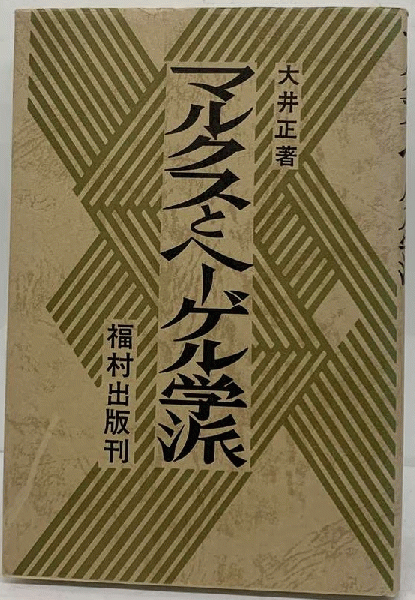 大井正著
マルクスとヘーゲル学派
福村出版刊